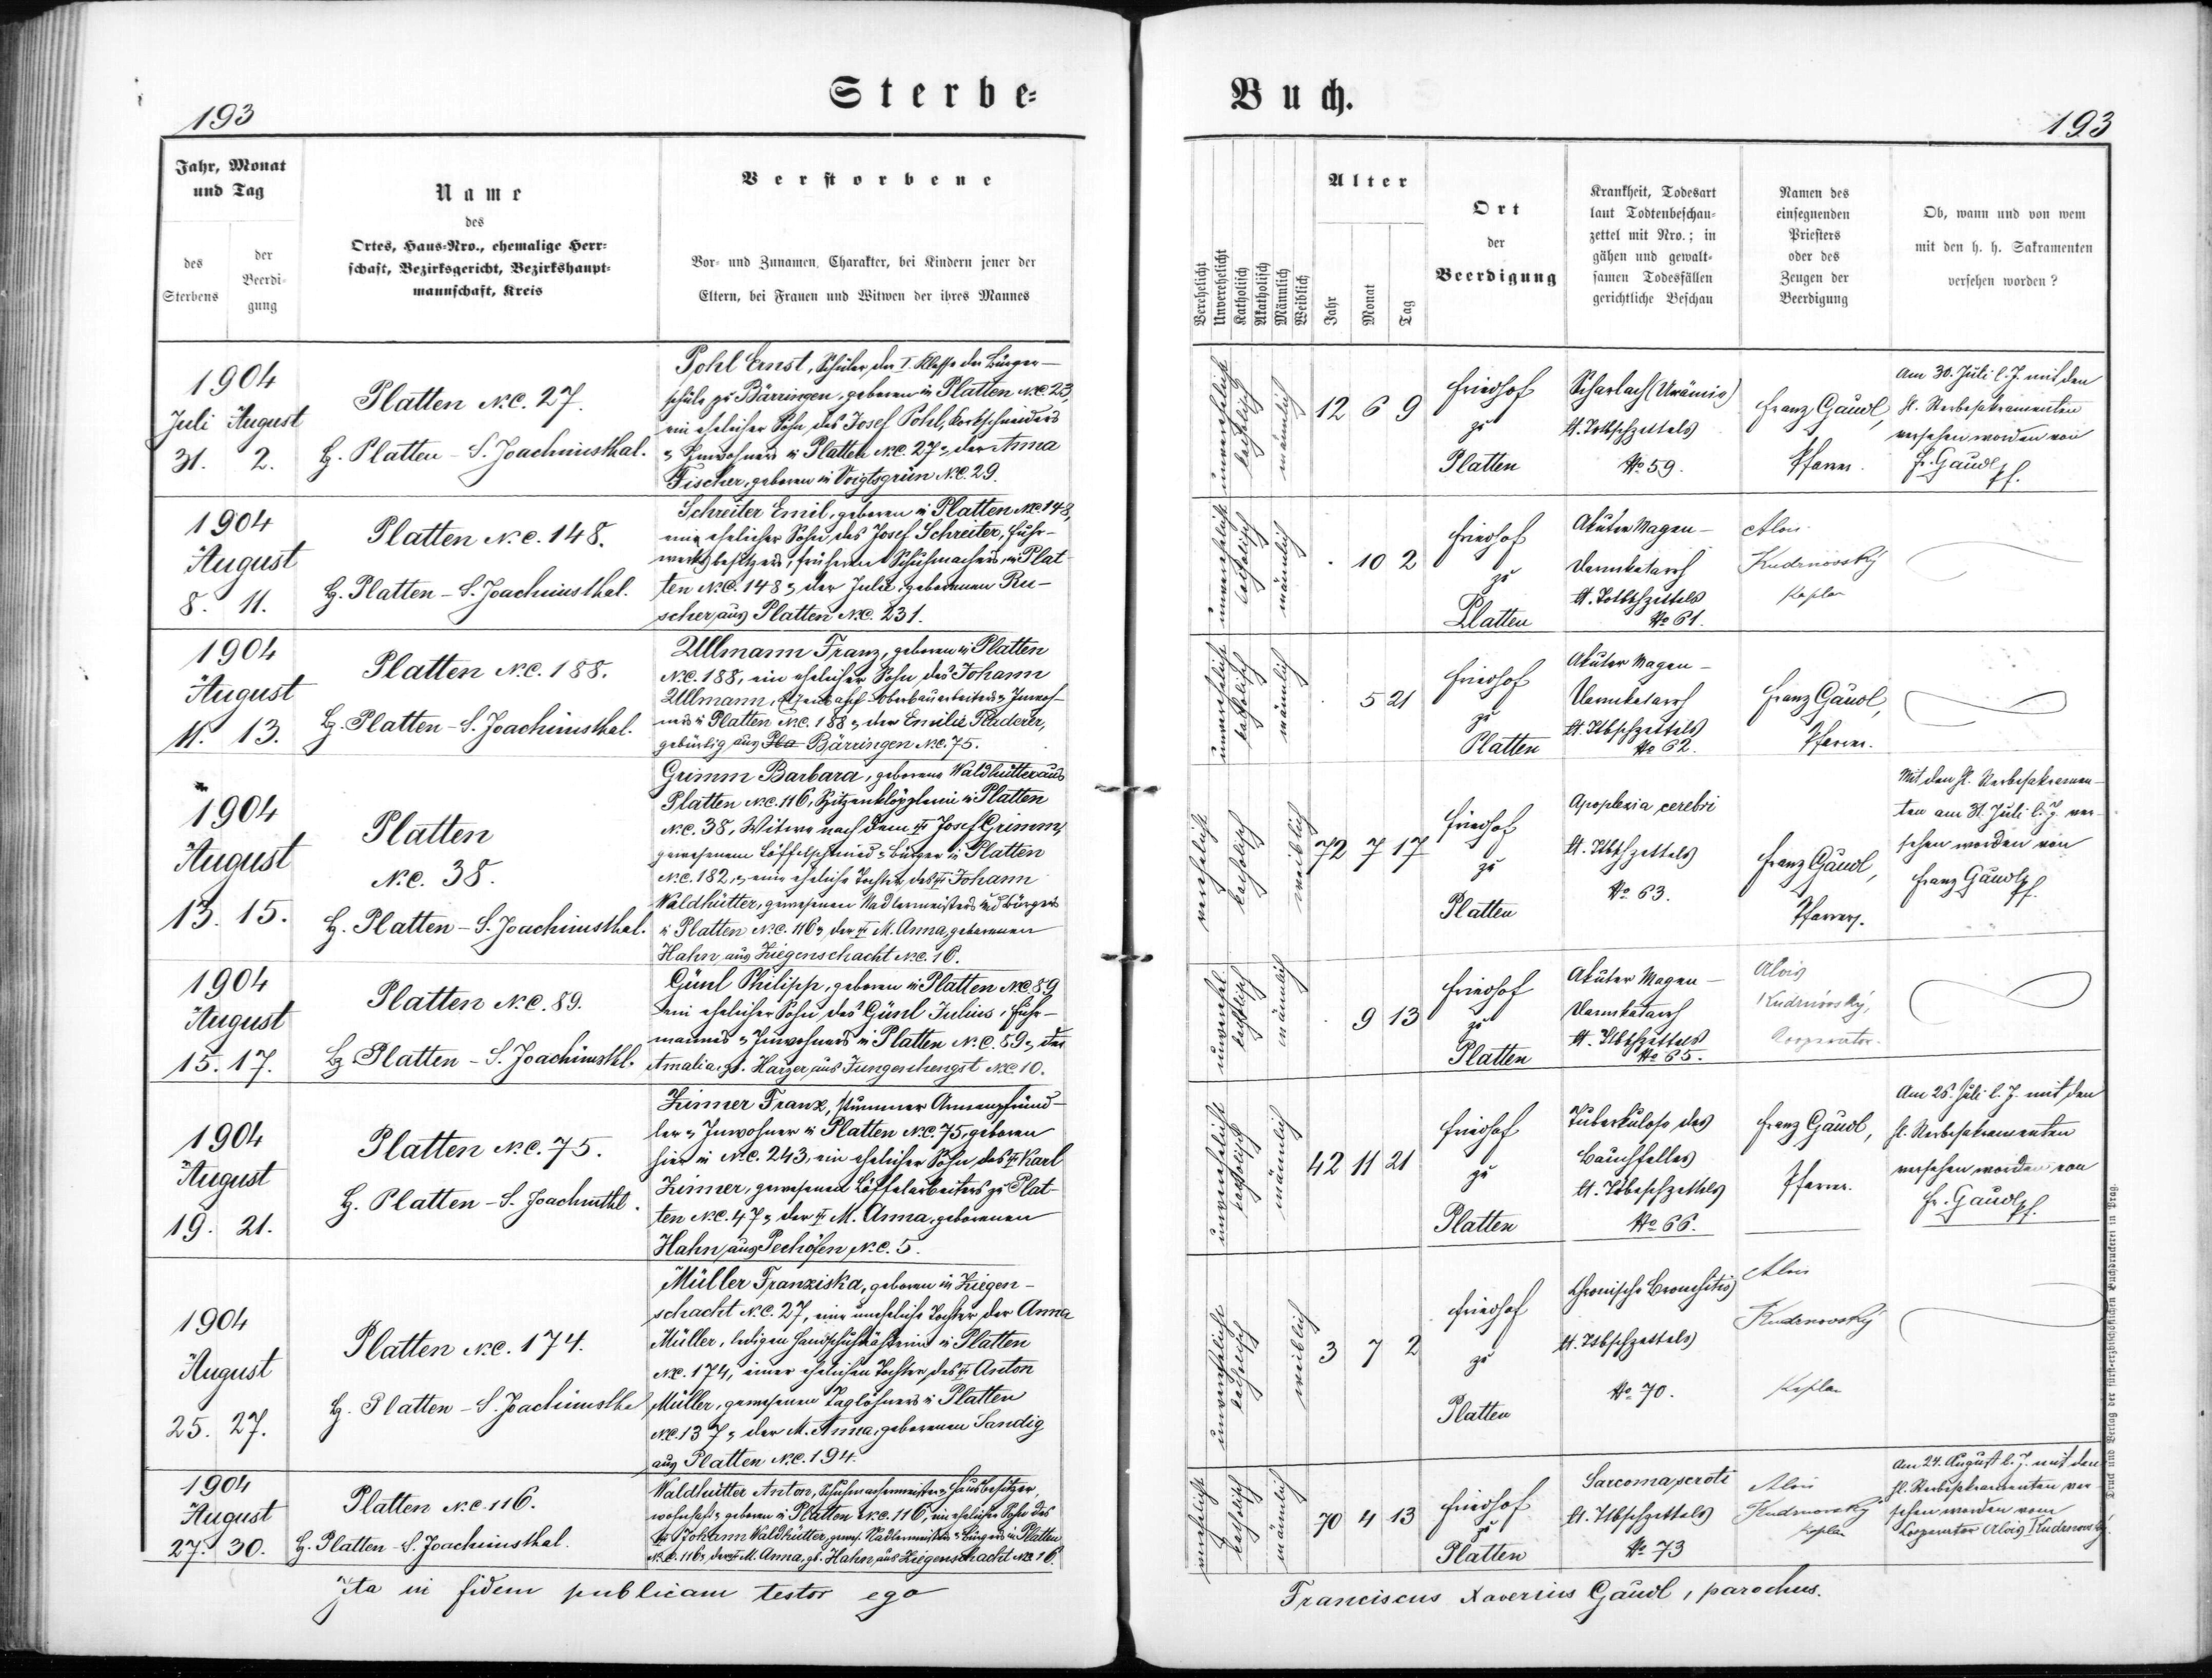 193
Sterbe-
Jahr, Monat
und Tag
des
Sterbens
der
Beerdi-
gung
Name
des
Ortes, Haus-Nro., ehemalige Herr-
schaft, Bezirksgericht, Bezirkshaupt-
mannschaft, Kreis
Verstorbene
Vor- und Zunamen, Charakter, bei Kindern jener der
Eltern, bei Frauen und Witwen der ihres Mannes
1904
Juli August
31. 2.
Platten N.C. 27.
G. Platten - S. Joachimsthal.
Pohl Ernst, Schüler der I. Klasse der Bürger-
schule zu Bärringen, geboren in Platten N.C. 23,
ein ehelicher Sohn des Josef Pohl, Korkschneiders
u. Inwohners in Platten N.C. 27 u. der Anna
Fischer, geboren in Voigtsgrün N.C. 29.
1904
August
8. 11.
Platten N.C. 148.
G. Platten - S. Joachimsthal.
Schreiter Emil, geboren in Platten N.C. 148,
ein ehelicher Sohn des Josef Schreiter, Fuhr-
werksbesitzers, früheren Schuhmachers, in Plat-
ten N.C. 148 u. der Julie, geborenen Ru-
scher aus Platten N.C. 231.
1904
August
11. 13.
Platten N.C. 188.
G. Platten - S. Joachimsthal.
Ullmann Franz, geboren in Platten
N.C. 188, ein ehelicher Sohn des Johann
Ullmann, Oberbauarbeiters u. Inwoh-
ners in Platten N.C. 188 u. der Emilie Paderer,
gebürtig aus Pla Bärringen N.C. 75.
1904
August
13. 15.
Platten
N.C. 38.
G. Platten - S. Joachimsthal.
Grimm Barbara, geborene Waldhütter aus
Platten N.C. 116, Spitzenklöpplerin in Platten
N.C. 38, Witwe nach dem † Josef Grimm,
gewesenem Löffelschmied u. Bürger in Platten
N.C. 182, u. eine eheliche Tochter des † Johann
Waldhütter, gewesenen Nadlermeisters und Bürgers
in Platten N.C. 116 u. der † M. Anna, geborenen
Hahn aus Ziegenschacht N.C. 16.
1904
August
15. 17.
Platten N.C. 89.
G. Platten - S. Joachimsthl.
Günl Philipp, geboren in Platten N.C. 89
ein ehelicher Sohn des Günl Julius, Fuhr-
mannes u. Inwohners in Platten N.C. 89 u. der
Amalia, gb. Harzer aus Jungenhengst N.C. 10.
1904
August
19. 21.
Platten N.C. 75.
G. Platten - S. Joachmthl.
Zimmer Franz, stummer Armenpfründ-
ler u. Inwohner in Platten N.C. 75, geboren
hier in N.C. 243, ein ehelicher Sohn des † Karl
Zimmer, gewesenen Löffelarbeiters zu Plat-
ten N.C. 47 u. der † M. Anna, geborenen
Hahn aus Pechöfen N.C. 5.
1904
August
25. 27.
Platten N.C. 174.
G. Platten - S. Joachimsthal
Müller Franziska, geboren in Ziegen-
schacht N.C. 27, eine uneheliche Tochter der Anna
Müller, ledigen Handschuhnäherin in Platten
N.C. 174, einer ehelichen Tochter des † Anton
Müller, gewesenen Taglöhners in Platten
N.C. 137 u. der M. Anna, geborenen Sandig
aus Platten N.C. 194.
1904
August
27. 30.
Platten N.C. 116.
G. Platten - S. Joachimsthal.
Waldhütter Anton, Schuhmachermeister u. Hausbesitzer,
wohnhaft u. geboren in Platten N.C. 116, ein ehelicher Sohn des
Johann Waldhütter, gewes. Nadlermeisters u. Bürgers in Platten
N.C. 116 u. der † M. Anna, gb. Hahn, aus Ziegenschacht N.C. 16.
Ita in fidem publicam testor ego
Buch.
193
Verehelicht
Unverehelicht
Katholisch
Akatholisch
Männlich
Weiblich
Alter
Jahr
Monat
Tag
Ort
der
Beerdigung
Krankheit, Todesart
laut Todtenbeschau-
zettel mit Nro.; in
gähen und gewalt-
samen Todesfällen
gerichtliche Beschau
Namen des
einsegnenden
Priesters
oder des
Zeugen der
Beerdigung
Ob, wann und von wem
mit den h. h. Sakramenten
versehen worden?
unverehelicht
katholisch
männlich
12 6 9
Friedhof
zu
Platten
Scharlach (Urämie)
lt. Tdtbschzettels
No 59.
Franz Gäudl,
Pfarrer.
Am 30. Juli l. J. mit den
hl. Sterbesakramenten
versehen worden von
Fr. Gäudl, Pf.
unverehelicht
katholisch
männlich
. 10 2
Friedhof
zu
Platten
Akuter Magen-
Darmkatarrh
lt. Todtbschzettels
No 61.
Alois
Kudrnovský
Kaplan
unverehelicht
katholisch
männlich
. 5 21
Friedhof
zu
Platten
Akuter Magen-
Darmkatarrh
lt. Tdtbschzettels
No 62.
Franz Gäudl,
Pfarrer.
verehelicht
katholisch
weiblich
72 7 17
Friedhof
zu
Platten
Apoplexia cerebri
lt. Tdtbschzettels
No 63.
Franz Gäudl,
Pfarrer.
Mit den hl. Sterbesakramen-
ten am 31. Juli l. J. ver-
sehen worden von
Franz Gäudl, Pf.
unverehel.
katholisch
männlich
. 9 13
Friedhof
zu
Platten
Akuter Magen-
Darmkatarrh
lt. Tdtbschzettels
No 65.
Alois
Kudrnovský,
Kooperator.
unverehelicht
katholisch
männlich
42 11 21
Friedhof
zu
Platten
Tuberkulose des
Bauchfelles
lt. Tdtbeschzettels
No 66.
Franz Gäudl,
Pfarrer.
Am 28. Juli l. J. mit den
hl. Sterbesakramenten
versehen worden von
Fr. Gäudl, Pf.
unverehelicht
katholisch
weiblich
3 7 2
Friedhof
zu
Platten
Chronische Bronchitis
lt. Tdtbschzettels
No. 70.
Alois
Kudrnovský
Kaplan
verehelicht
katholisch
männlich
70 4 13
Friedhof
zu
Platten
Sarcoma scroti
lt. Tdtbschzettels
No 73
Alois
Kudrnovský
Kaplan
Am 24. August l. J. mit den
hl. Sterbesakramenten ver-
sehen worden vom
Kooperator Alois Kudrnovský.
Franciscus Xaverius Gäudl, parochus.
Druck und Verlag der fürst-erzbischöflichen Buchdruckerei in Prag.